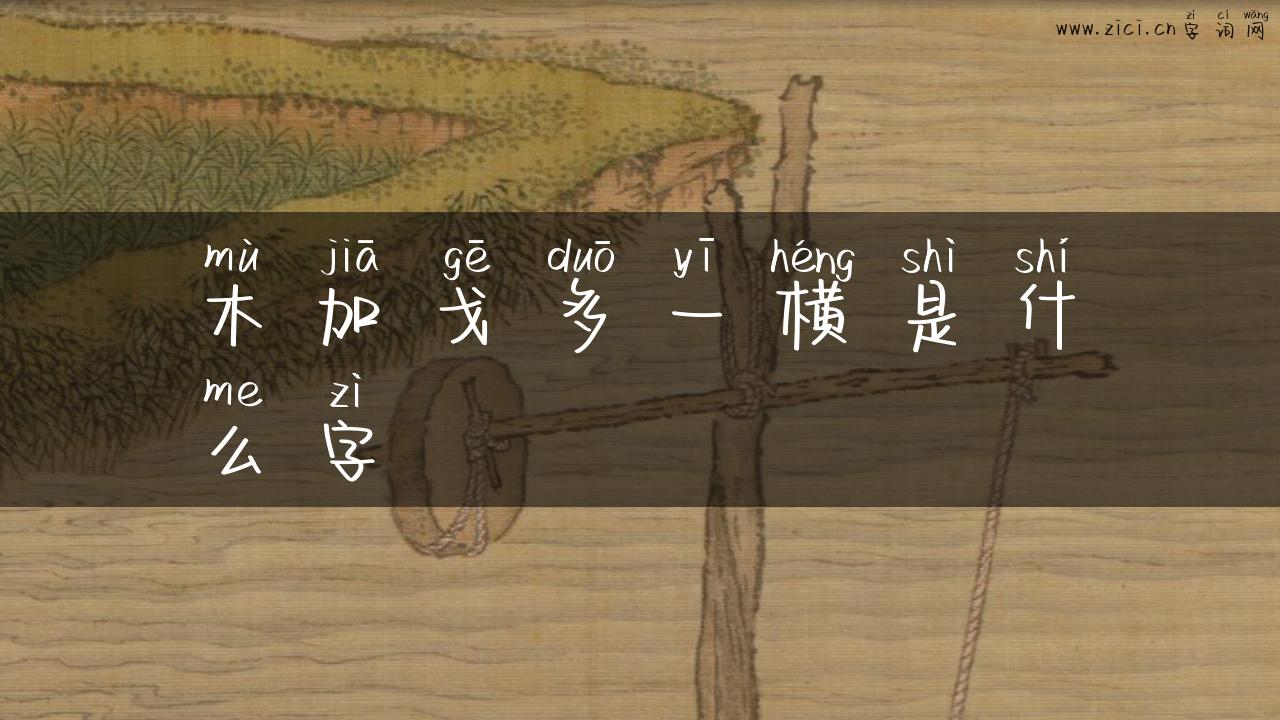 zì cí wǎng
www.zici.cn字词网
mù jiā gē duō yī héng shì shí
木加戈多一横是什
me zì
么字